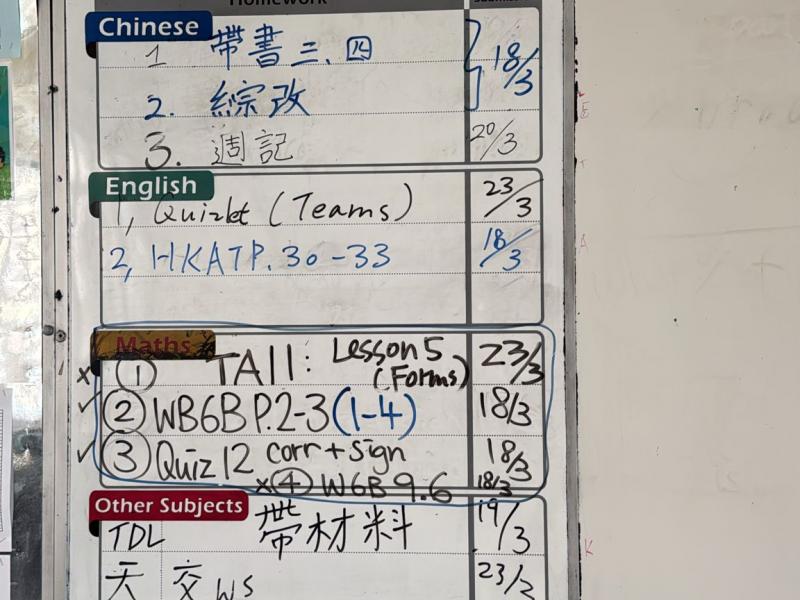 Homework
Chinese
1 帶書三、四 18/3
2. 綜改
3. 週記 20/3
English
1, Quizlet (Teams) 23/3
2, HKATP.30-33 18/3
Maths
① TA11: Lesson 5 (Forms) 23/3
② WB6B P.2-3 (1-4) 18/3
③ Quiz 12 corr + sign 18/3
④ W6B 9.6 18/3
Other Subjects
TDL 帶材料 19/3
天 交 WS